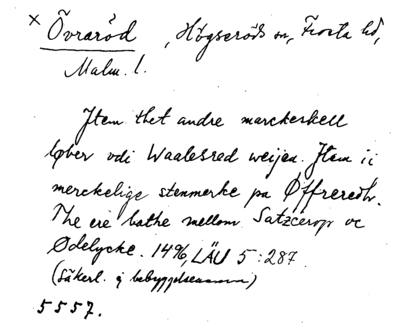 × Övraröd, Högseröds sn, Frosta hd,
Malm. l.
Jtem thet andre marckeskell
løber vdi Waalesred weijen. Jtem ii
merckelige stenmerke pa Øffreredh.
The ere bathe mellom Satzcerop oc
Ødelycke. 1496, LÄU 5:287.
(säkerl. ej bebyggelsenamn)
5557.